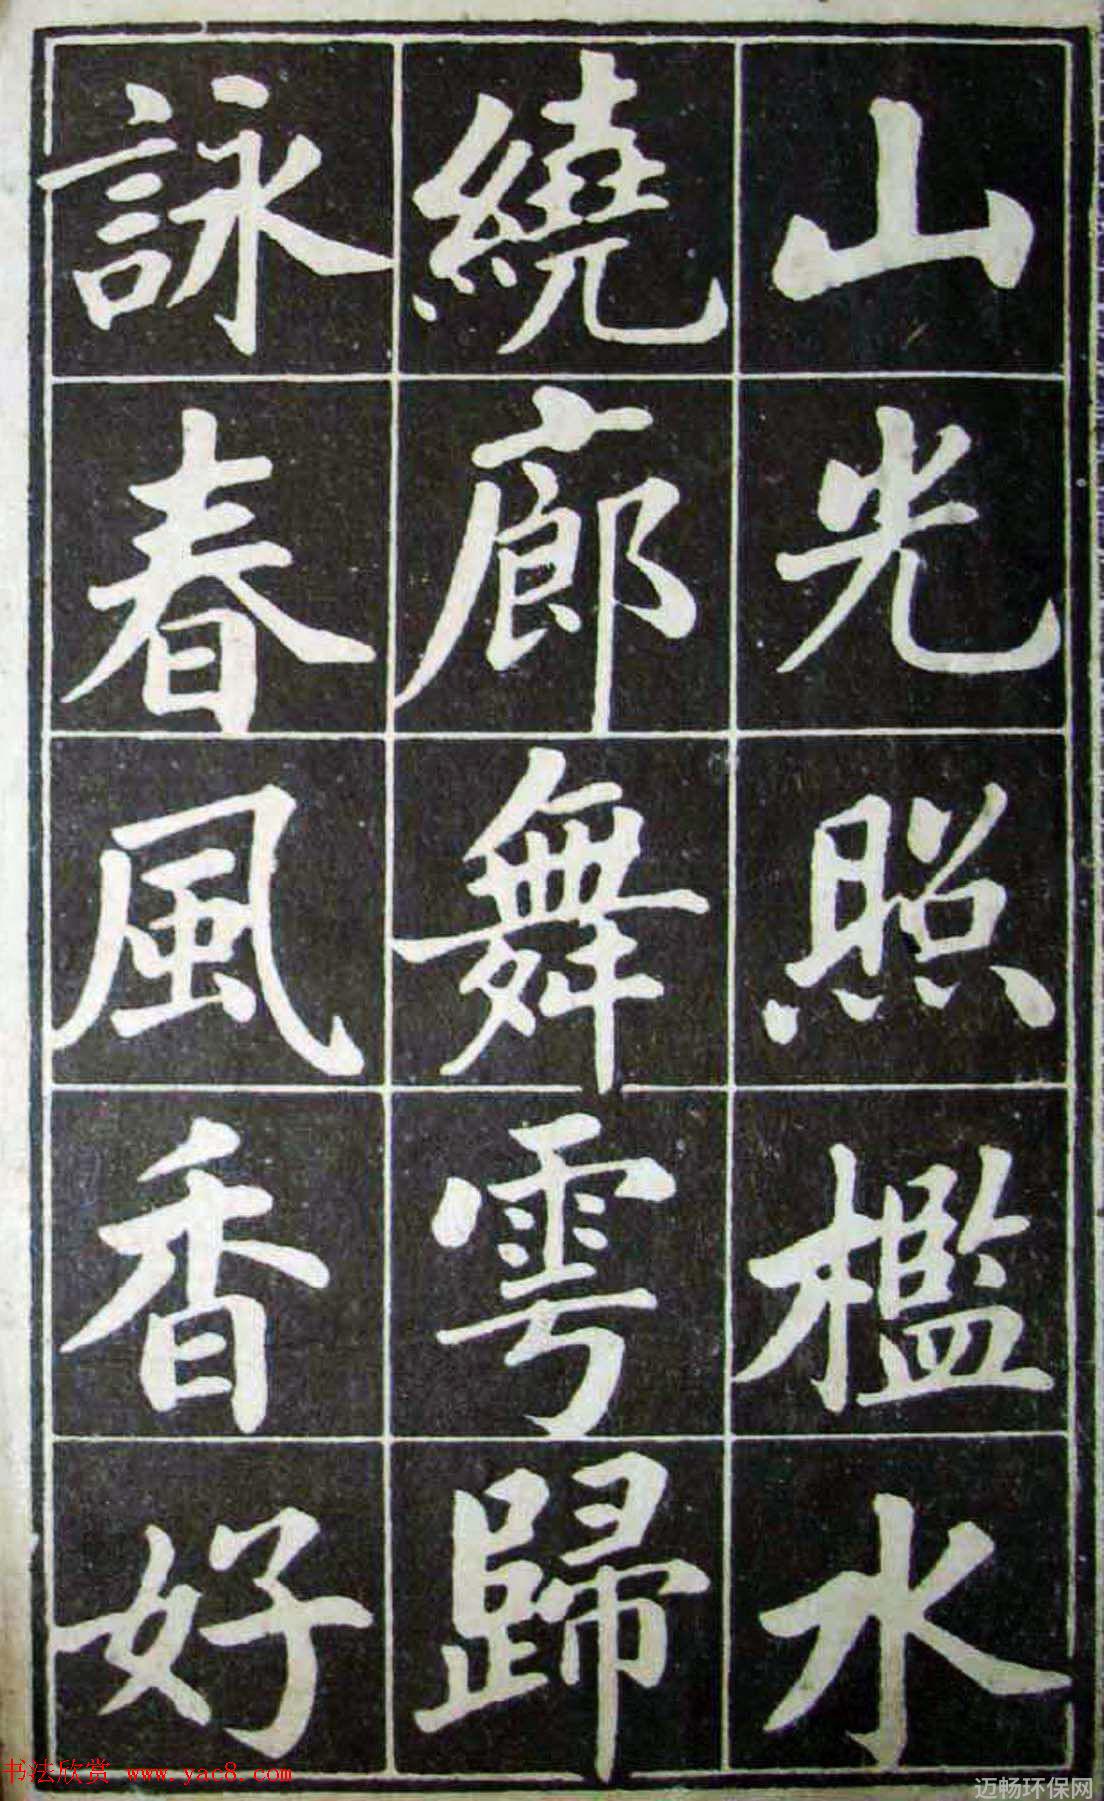 山光照檻水
繞廊舞雩歸
詠春風香好
书法欣赏 www.yac8.com
迈畅环保网